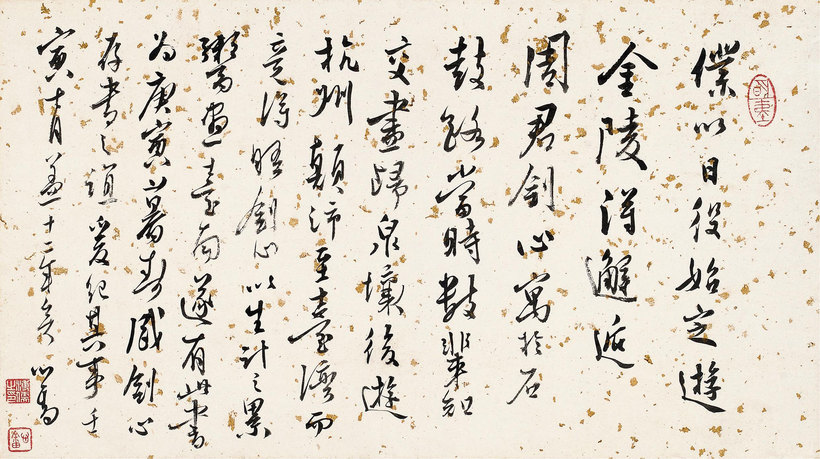 僕以日役始定遊
金陵得邂逅
周君劍心寓於石
鼓路當時數輩知
交盡歸泉壤後遊
杭州顛沛至臺灣而
竟得晤劍心以生計之累
鬻畫臺南遂有此書
為庚寅暮春感劍心
存書之誼爰紀其事壬
寅十月蓋十二年矣 心畬